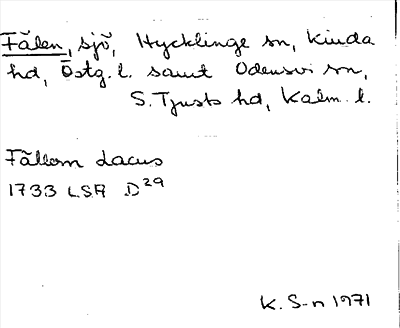 Fälen, sjö, Hycklinge sn, Kinda
hd, Östg. l. samt Odensvi sn,
S. Tjusts hd, Kalm. l.
Fällern Lacus
1733 LSA D29
K. S-n 1971